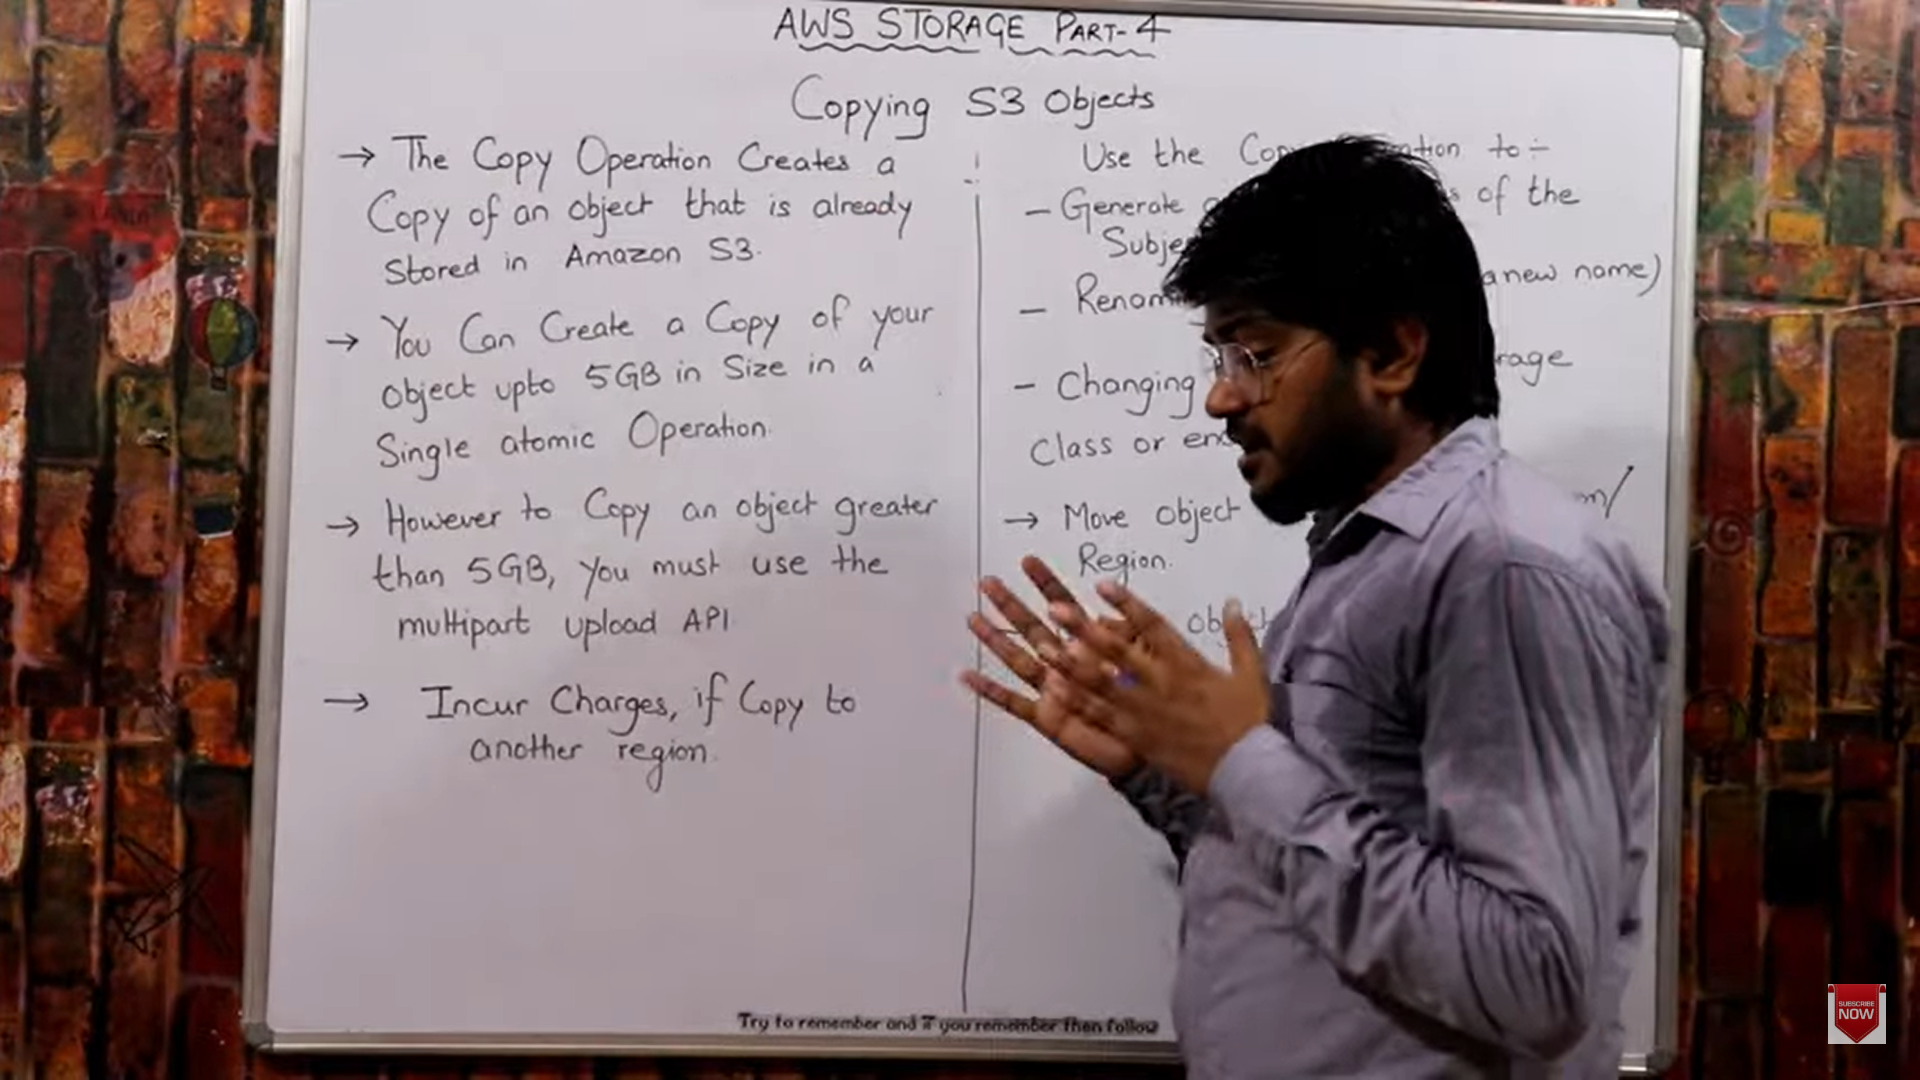 AWS STORAGE PART-4
Copying S3 Objects
→ The Copy Operation Creates a
Copy of an object that is already
Stored in Amazon S3.
→ You Can Create a Copy of your
object upto 5GB in Size in a
Single atomic Operation.
→ However to Copy an object greater
than 5GB, you must use the
multipart upload API
→ Incur Charges, if Copy to
another region.
Use the to÷
- Generate of the
a new name)
- Changing
Class or
→ Move object
Region.
Try to remember and if you remember then follow
SUBSCRIBE
NOW